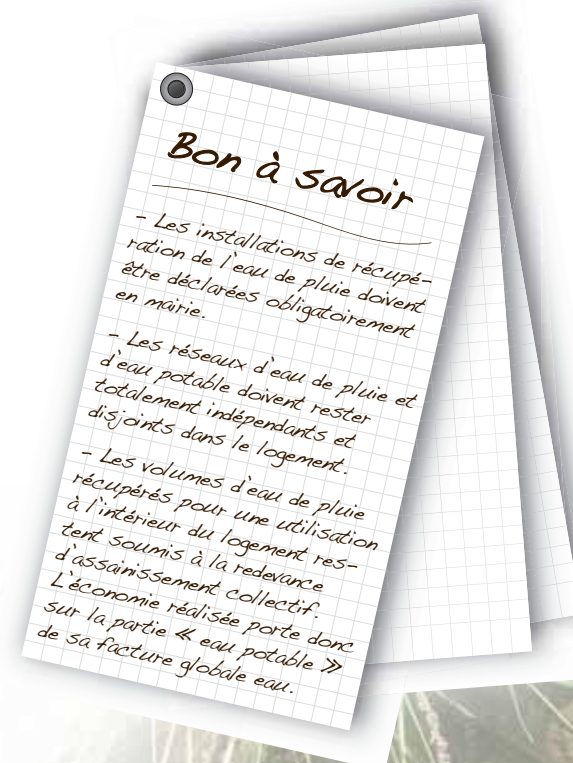 Bon à savoir
- Les installations de récupé-
ration de l'eau de pluie doivent
être déclarées obligatoirement
en mairie.
- Les réseaux d'eau de pluie et
d'eau potable doivent rester
totalement indépendants et
disjoints dans le logement.
- Les volumes d'eau de pluie
récupérés pour une utilisation
à l'intérieur du logement res-
tent soumis à la redevance
d'assainissement collectif.
L'économie réalisée porte donc
sur la partie « eau potable »
de sa facture globale eau.